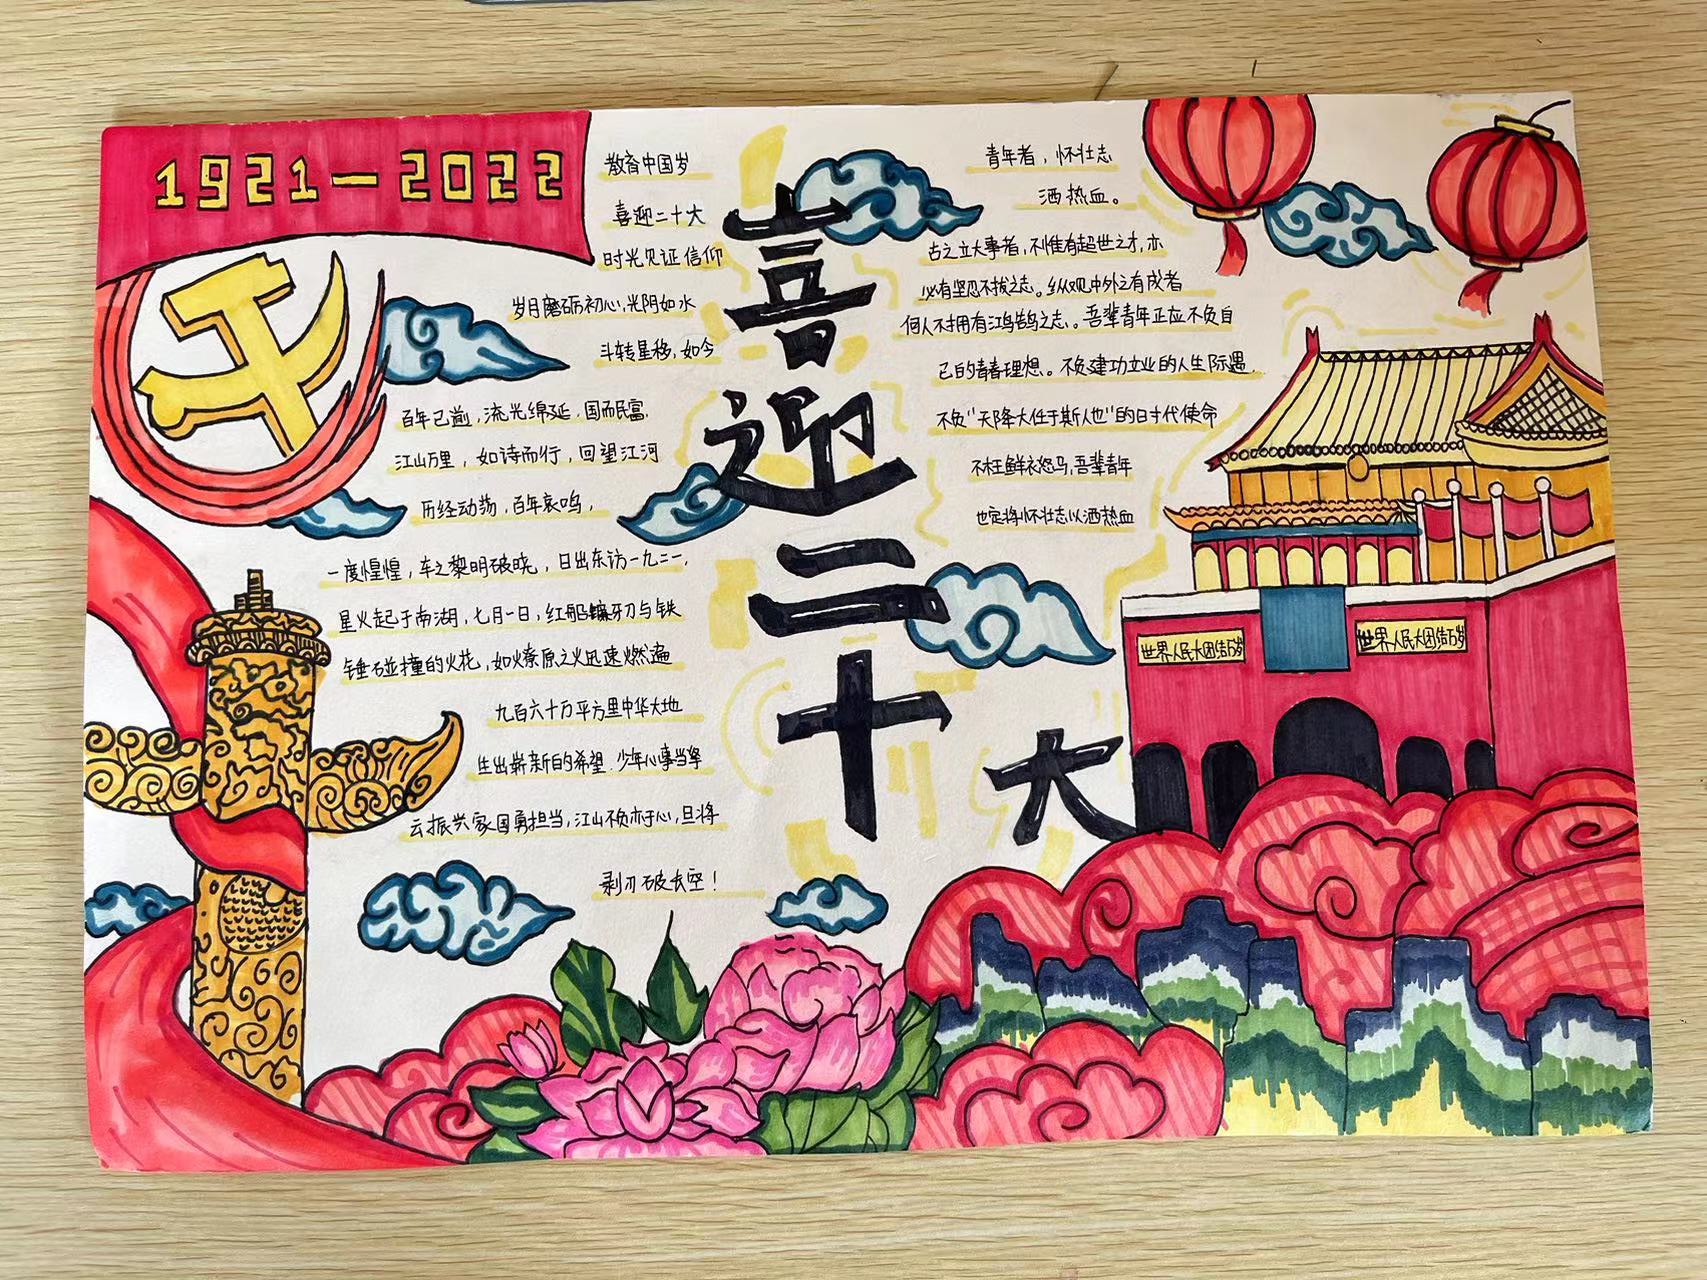 1921—2022
教育中国岁
喜迎二十大
时光见证信仰
岁月磨砺初心,光阴如水
斗转星移,如今
百年已逾,流光绵延,国而民富,
江山万里,如诗而行,回望江河
历经动荡,百年哀鸣,
一度惶惶,车之黎明破晓,日出东访一九二一,
星火起于南湖,七月一日,红船镰牙刀与铁
锤碰撞的火花,如燎原之火迅速燃遍
九百六十万平方里中华大地
生出崭新的希望.少年心事当拏
云振兴家国勇担当,江山不负亦于心,旦将
剃刃破长空!
喜迎二十大
青年者,怀壮志
洒热血。
古之立大事者,不惟有超世之才,亦
必有坚忍不拔之志。纵观中外之有成者
何人不拥有鸿鹄之志。吾辈青年正应不负自
己的青春理想。不负建功立业的人生际遇.
不负“天降大任于斯人也”的时代使命
不枉鲜衣怒马,吾辈青年
也定将怀壮志以洒热血
世界人民大团结万岁
世界人民大团结万岁